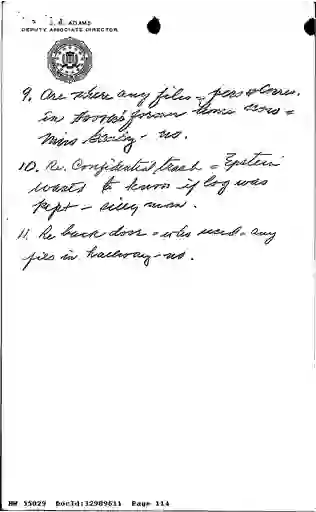 J. B. ADAMS
DEPUTY ASSOCIATE DIRECTOR
9. Are there any files - pers & Corres.
in Hoover's former home now -
Miss Gandy - no.
10. Re. Confidential trash - Epstein
wants to know if log was
kept - silly man.
11. Re back door - who used - any
files in hallway - no.
HW 55029 DocId:32989611 Page 114